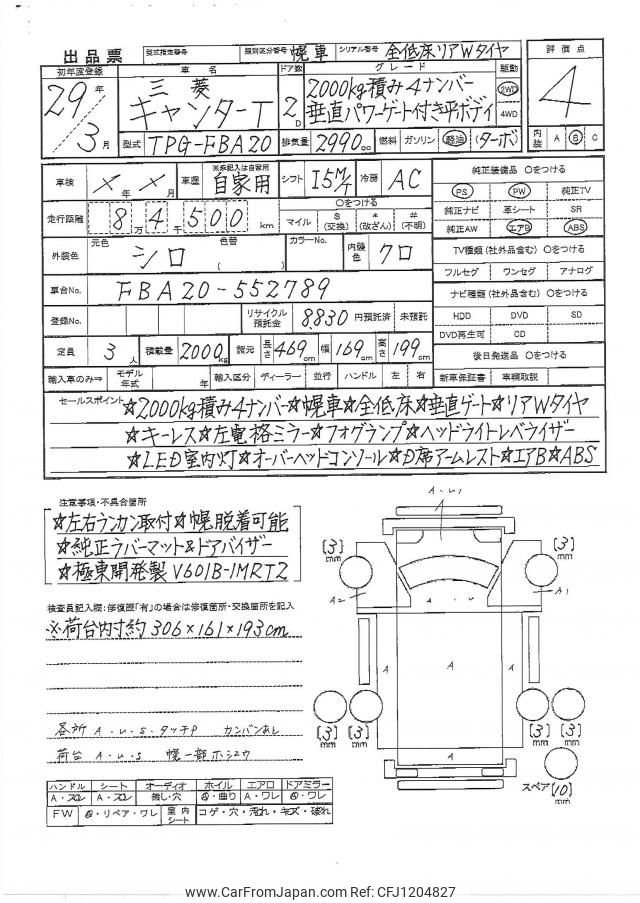 出品票 型式指定番号 類別区分番号 幌車 シリアル番号 全低床リアWタイヤ
評価点
初年度登録 車名 ドア数 グレード 駆動
29年 三菱 2000kg積み4ナンバー 2WD 4
キャンターT 2D 垂直パワーゲート付き平ボディ 4WD
3月 型式 TPG-FBA20 排気量 2990cc 燃料 ガソリン 軽油 (ターボ) 内装 A B C
車検 ×年×月 車歴 ※未記入は自家用 自家用 シフト I5M/T 冷房 AC
純正装備品 ○をつける
PS PW 純正TV
走行距離 84500km
万 千
○をつける
マイル $(交換) *(改ざん) #(不明)
純正ナビ 革シート SR
純正AW エアB ABS
外装色 元色 シロ 色替 ( ) カラーNo. 内装色 クロ
TV種類(社外品含む) ○をつける
フルセグ ワンセグ アナログ
車台No. FBA20-552789
ナビ種類(社外品含む) ○をつける
HDD DVD SD
DVD再生可 CD
登録No. リサイクル預託金 8,830 円預託済 未預託
定員 3人 積載量 2000kg 諸元 長さ 469cm 幅 169cm 高さ 199cm
後日発送品 ○をつける
輸入車のみ⇒ モデル年式 年 輸入区分 ディーラー 並行 ハンドル 左 右
新車保証書 取扱説明書
セールスポイント ☆2000kg積み4ナンバー☆幌車☆全低床☆垂直ゲート☆リアWタイヤ
☆キーレス☆左電格ミラー☆フォグランプ☆ヘッドライトレベライザー
☆LED室内灯☆オーバーヘッドコンソール☆D席アームレスト☆エアB☆ABS
注意事項・不具合箇所
☆左右ランカン取付☆幌脱着可能
☆純正ラバーマット&ドアバイザー
☆極東開発製 V601B-1MRT2
検査員記入欄:修復歴「有」の場合は修復箇所・交換箇所を記入
※荷台内寸約306×161×193cm
各所 A.u.s.タッチP カンバンあし
荷台 A.u.s 幌一部ホシュウ
ハンドル シート オーディオ ホイル エアロ ドアミラー
A・スレ A・スレ 無し・穴 A・曲り A・ワレ A・ワレ
FW A・リペア・ワレ 室内シート コゲ・穴・汚れ・キズ・破れ
A.u.
[3]mm [3]mm
A2 A.u A1
A A A
[3]mm [3]mm [3]mm [3]mm
A
スペア[10]mm
www.CarFromJapan.com Ref: CFJ1204827